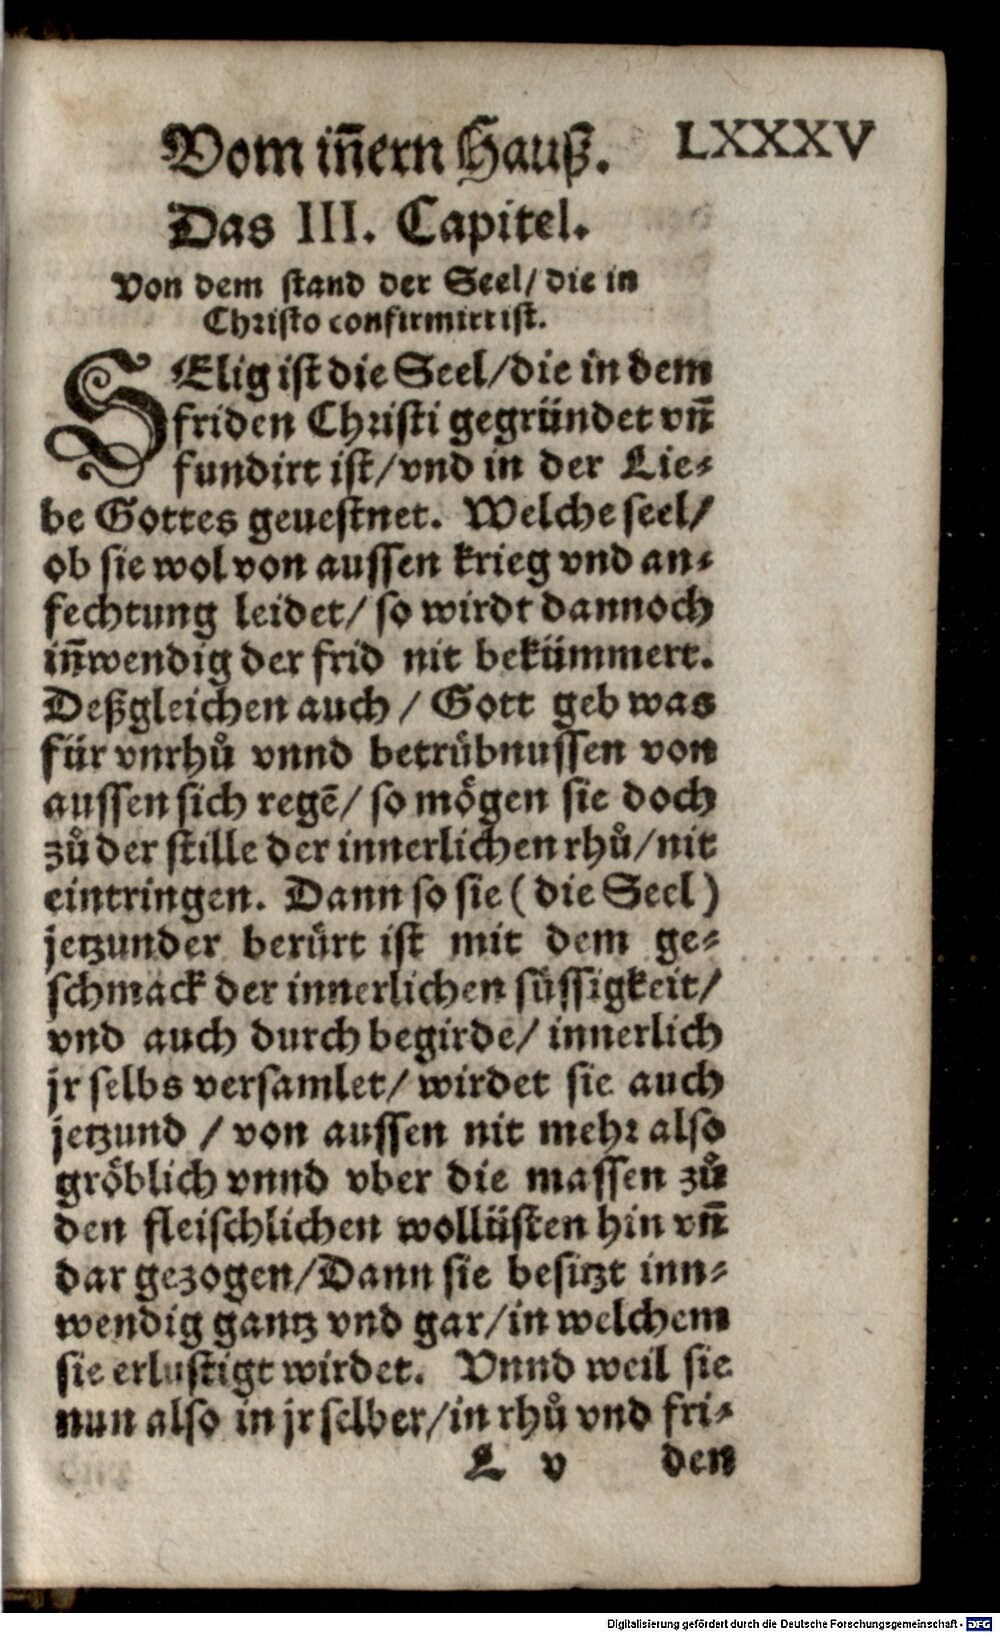 Vom iñern Hauß. LXXXV
Das III. Capitel.
Von dem stand der Seel/ die in
Christo confirmirt ist.
SElig ist die Seel/die in dem
friden Christi gegründet vñ
fundirt ist/vnd in der Lie-
be Gottes geuestnet. Welche seel/
ob sie wol von aussen krieg vnd an-
fechtung leidet/ so wirdt dannoch
iñwendig der frid nit bekümmert.
Deßgleichen auch / Gott geb was
für vnrhů vnnd betrůbnussen von
aussen sich regẽ/ so mögen sie doch
zů der stille der innerlichen rhů/nit
eintringen. Dann so sie ( die Seel )
jetzunder berůrt ist mit dem ge-
schmack der innerlichen sůssigkeit/
vnd auch durch begirde/ innerlich
jr selbs versamlet/ wirdet sie auch
jetzund / von aussen nit mehr also
gröblich vnnd vber die massen zů
den fleischlichen wollüsten hin vñ
dar gezogen/Dann sie besitzt inn-
wendig gantz vnd gar/in welchem
sie erlustigt wirdet. Vnnd weil sie
nun also in jr selber/in rhů vnd fri-
L v den
Digitalisierung gefördert durch die Deutsche Forschungsgemeinschaft - DFG